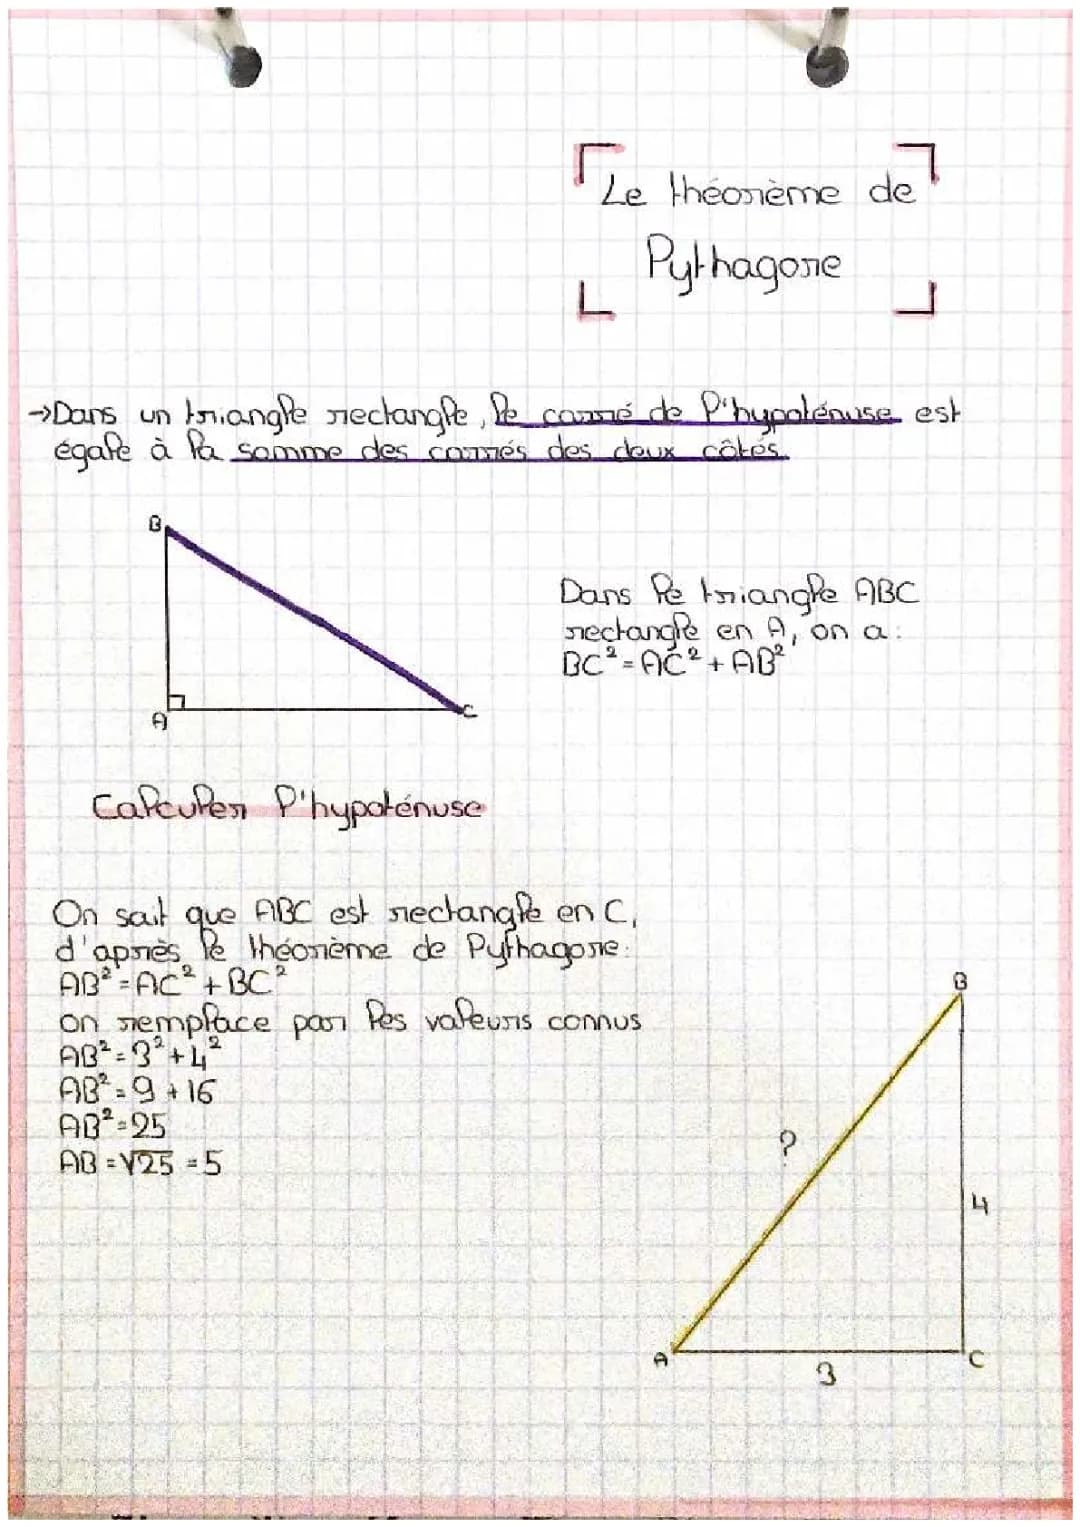 Le théorème de
Pythagore
→Dans un triangle rectangle, le carré de l'hypoténuse est
égale à la somme des carrés des deux côtés.
B
A
C
Dans le triangle ABC
rectangle en A, on a:
BC² = AC² + AB²
Calculer l'hypoténuse
On sait que ABC est rectangle en C,
d'après le théorème de Pythagore:
AB² = AC² + BC²
on remplace par les valeurs connus
AB² = 3² + 4²
AB² = 9 + 16
AB² = 25
AB = √25 = 5
B
?
4
A
3
C